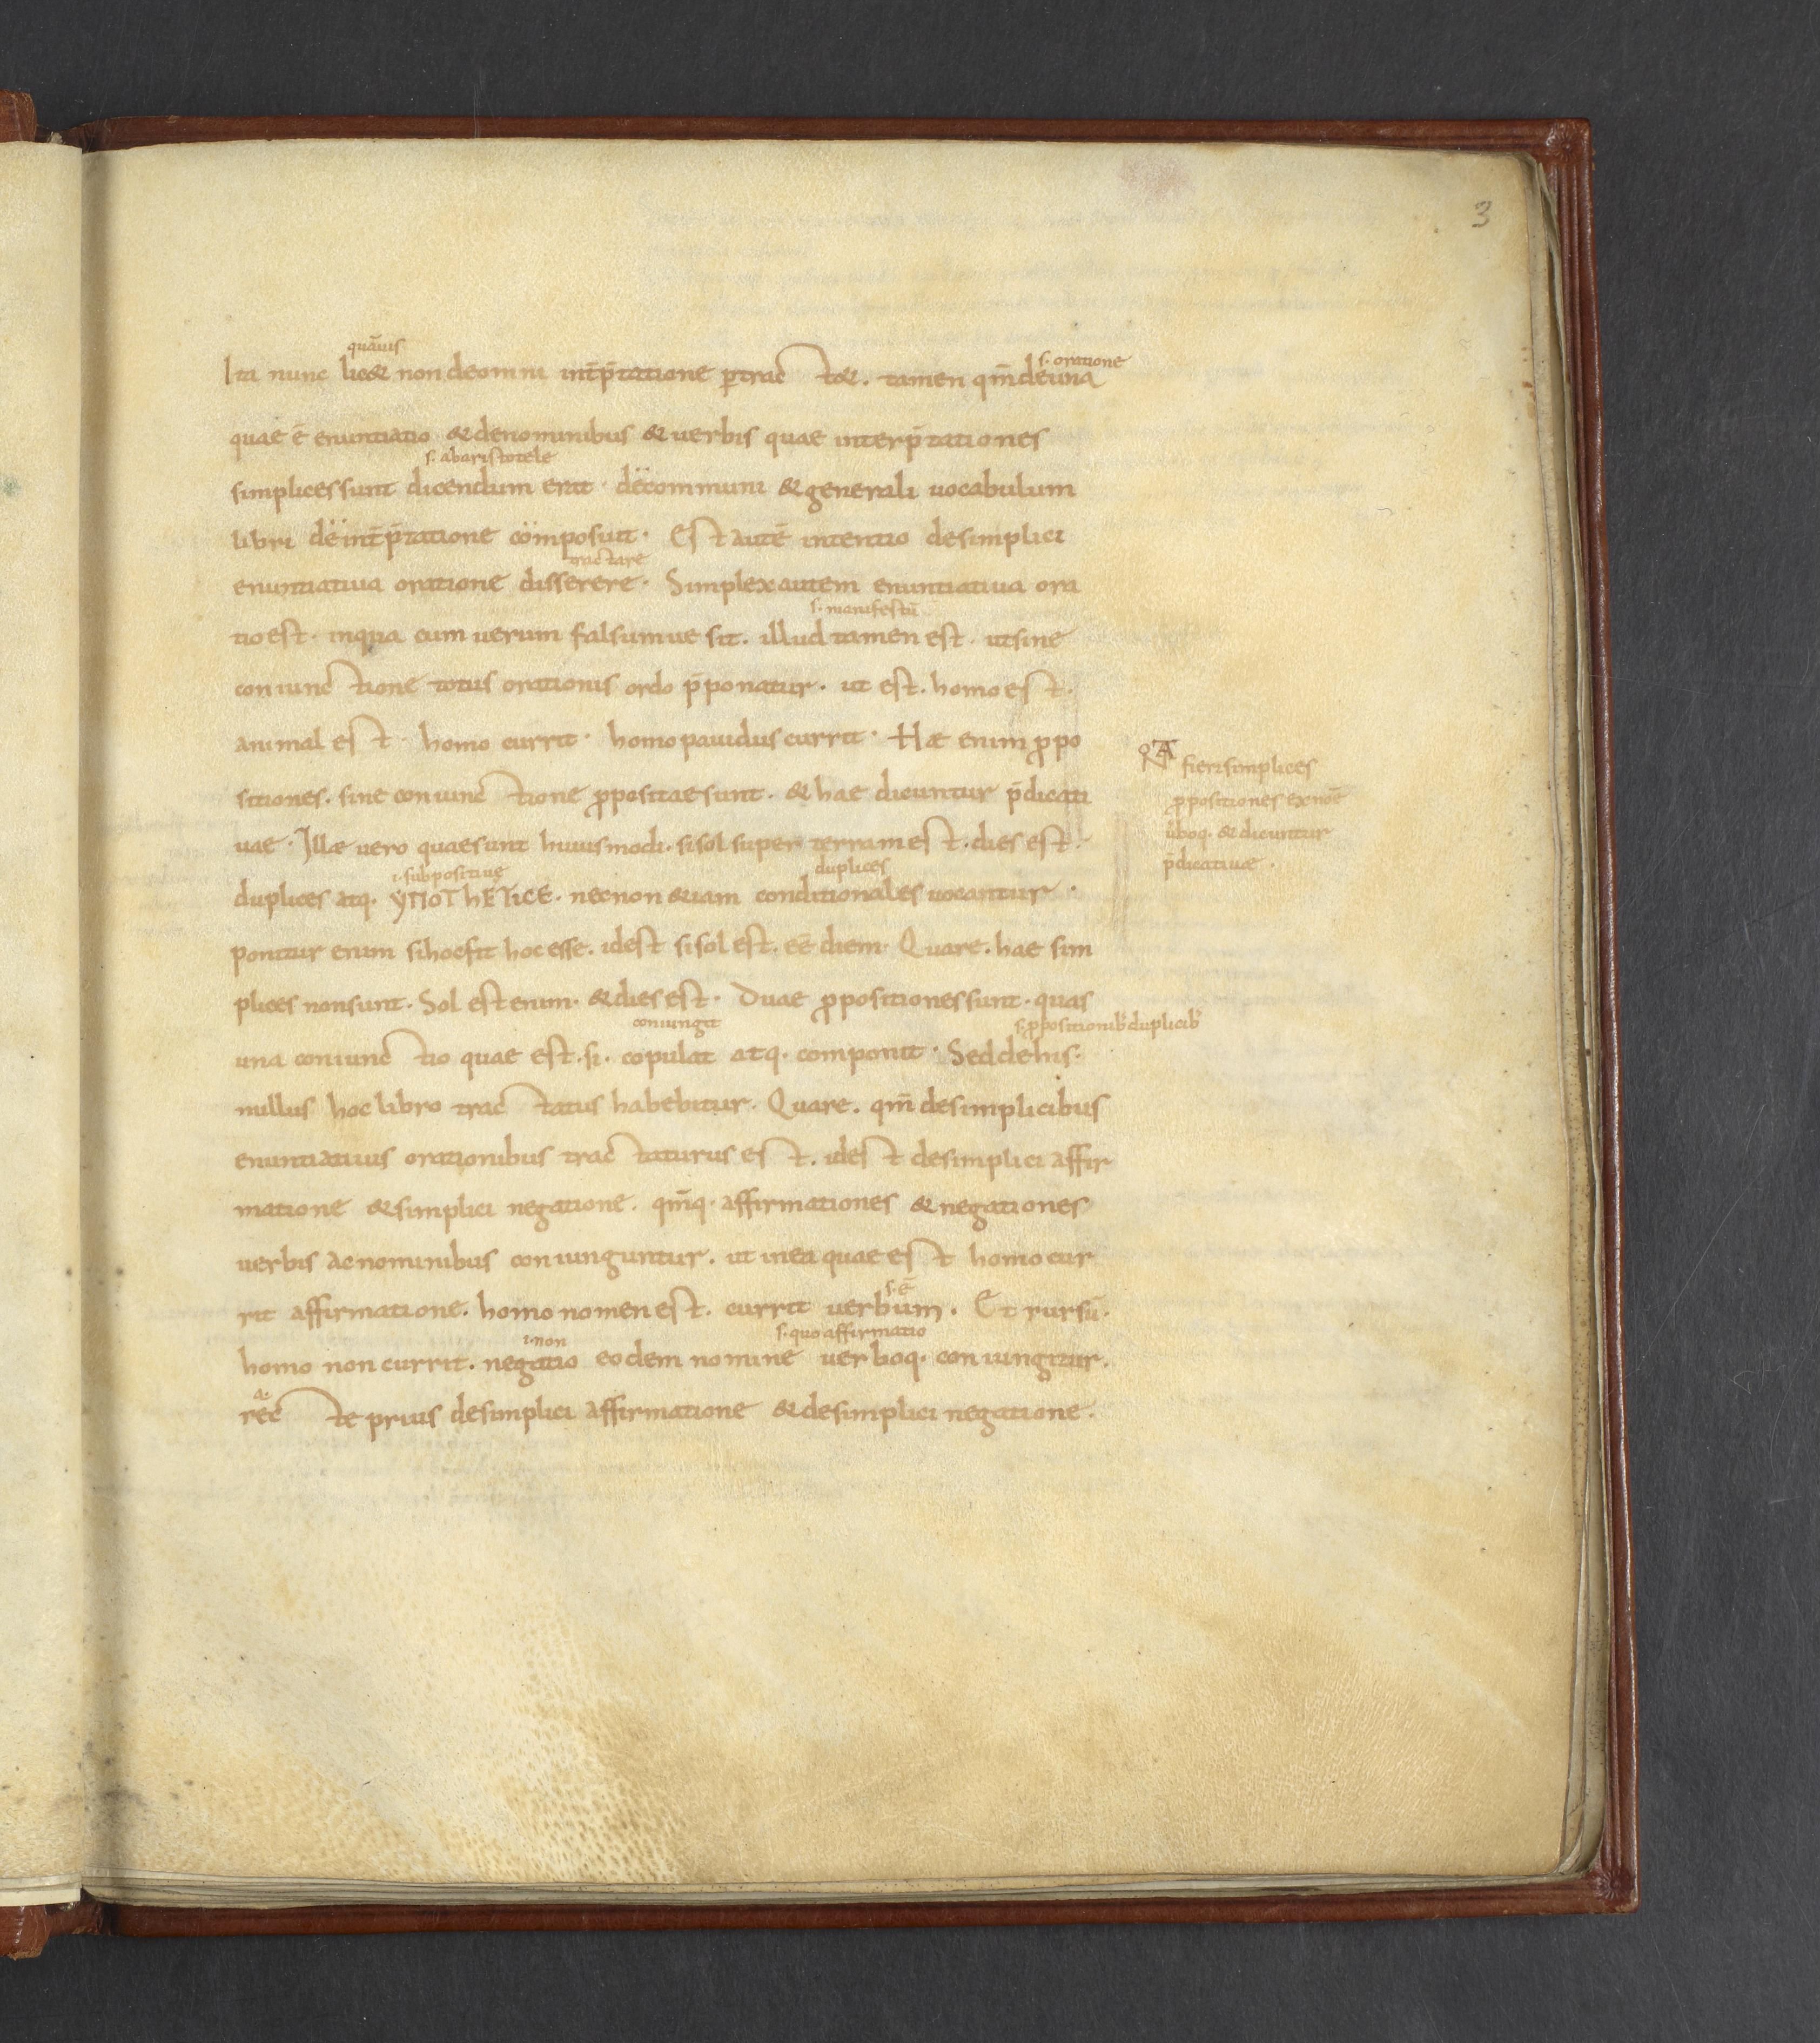 3
quāuis
s. oratione
Ita nunc lic& non de omni int̄p̄tatione ꝑtract&. tamen qm̄ de una
quae ē enuntiatio & de nominibus & uerbis quae interp̄tationes
s. abaristotele
simplices sunt dicendum erat · de communi & generali uocabulum
libri de int̄p̄tatione composuit · Est autē intentio de simplici
tractare
enuntiatiua oratione disserere · Simplex autem enuntiatiua ora
s. manifestū
tio est · in qua cum uerum falsumue sit. illud tamen est. ut sine
coniunctione totus orationis ordo p̄ponatur. ut est. homo est.
animal est · homo currit · homo pauidus currit · Hæ enim ꝓpo
sitiones. sine coniunctione ꝓpositae sunt. & hae dicuntur p̄dicati
uae · Illæ uero quae sunt huiusmodi. si sol super terram est. dies est.
i. subpositiuę
duplices
duplices atq. yΠoThETicE. necnon &iam conditionales uocantur.
ponitur enim si hoc sit hoc esse. id est si sol est. eē diem. Quare. hae sim
plices non sunt. Sol est enim. & dies est. Duae ꝓpositiones sunt. quas
coniungit
s. ꝓpositionib; duplicib;
una coniunctio quae est. si. copulat atq. componit. Sed de his.
nullus hoc libro tractatus habebitur. Quare. qm̄ de simplicibus
enuntiatiuis orationibus tractaturus est. id est de simplici affir
matione & simplici negatione. qm̄q. affirmationes & negationes
uerbis ac nominibus coniunguntur. ut in ea quae est homo cur
s. ē
rit affirmatione. homo nomen est. currit uerbum. Et rursū.
i. non
s. quo affirmatio
homo non currit. negatio eodem nomine uerboq. coniungitur.
recte prius de simplici affirmatione & de simplici negatione.
fieri simplices
ꝓpositiones ex noē
ūboq. & dicuntur
p̄dicatiuæ.